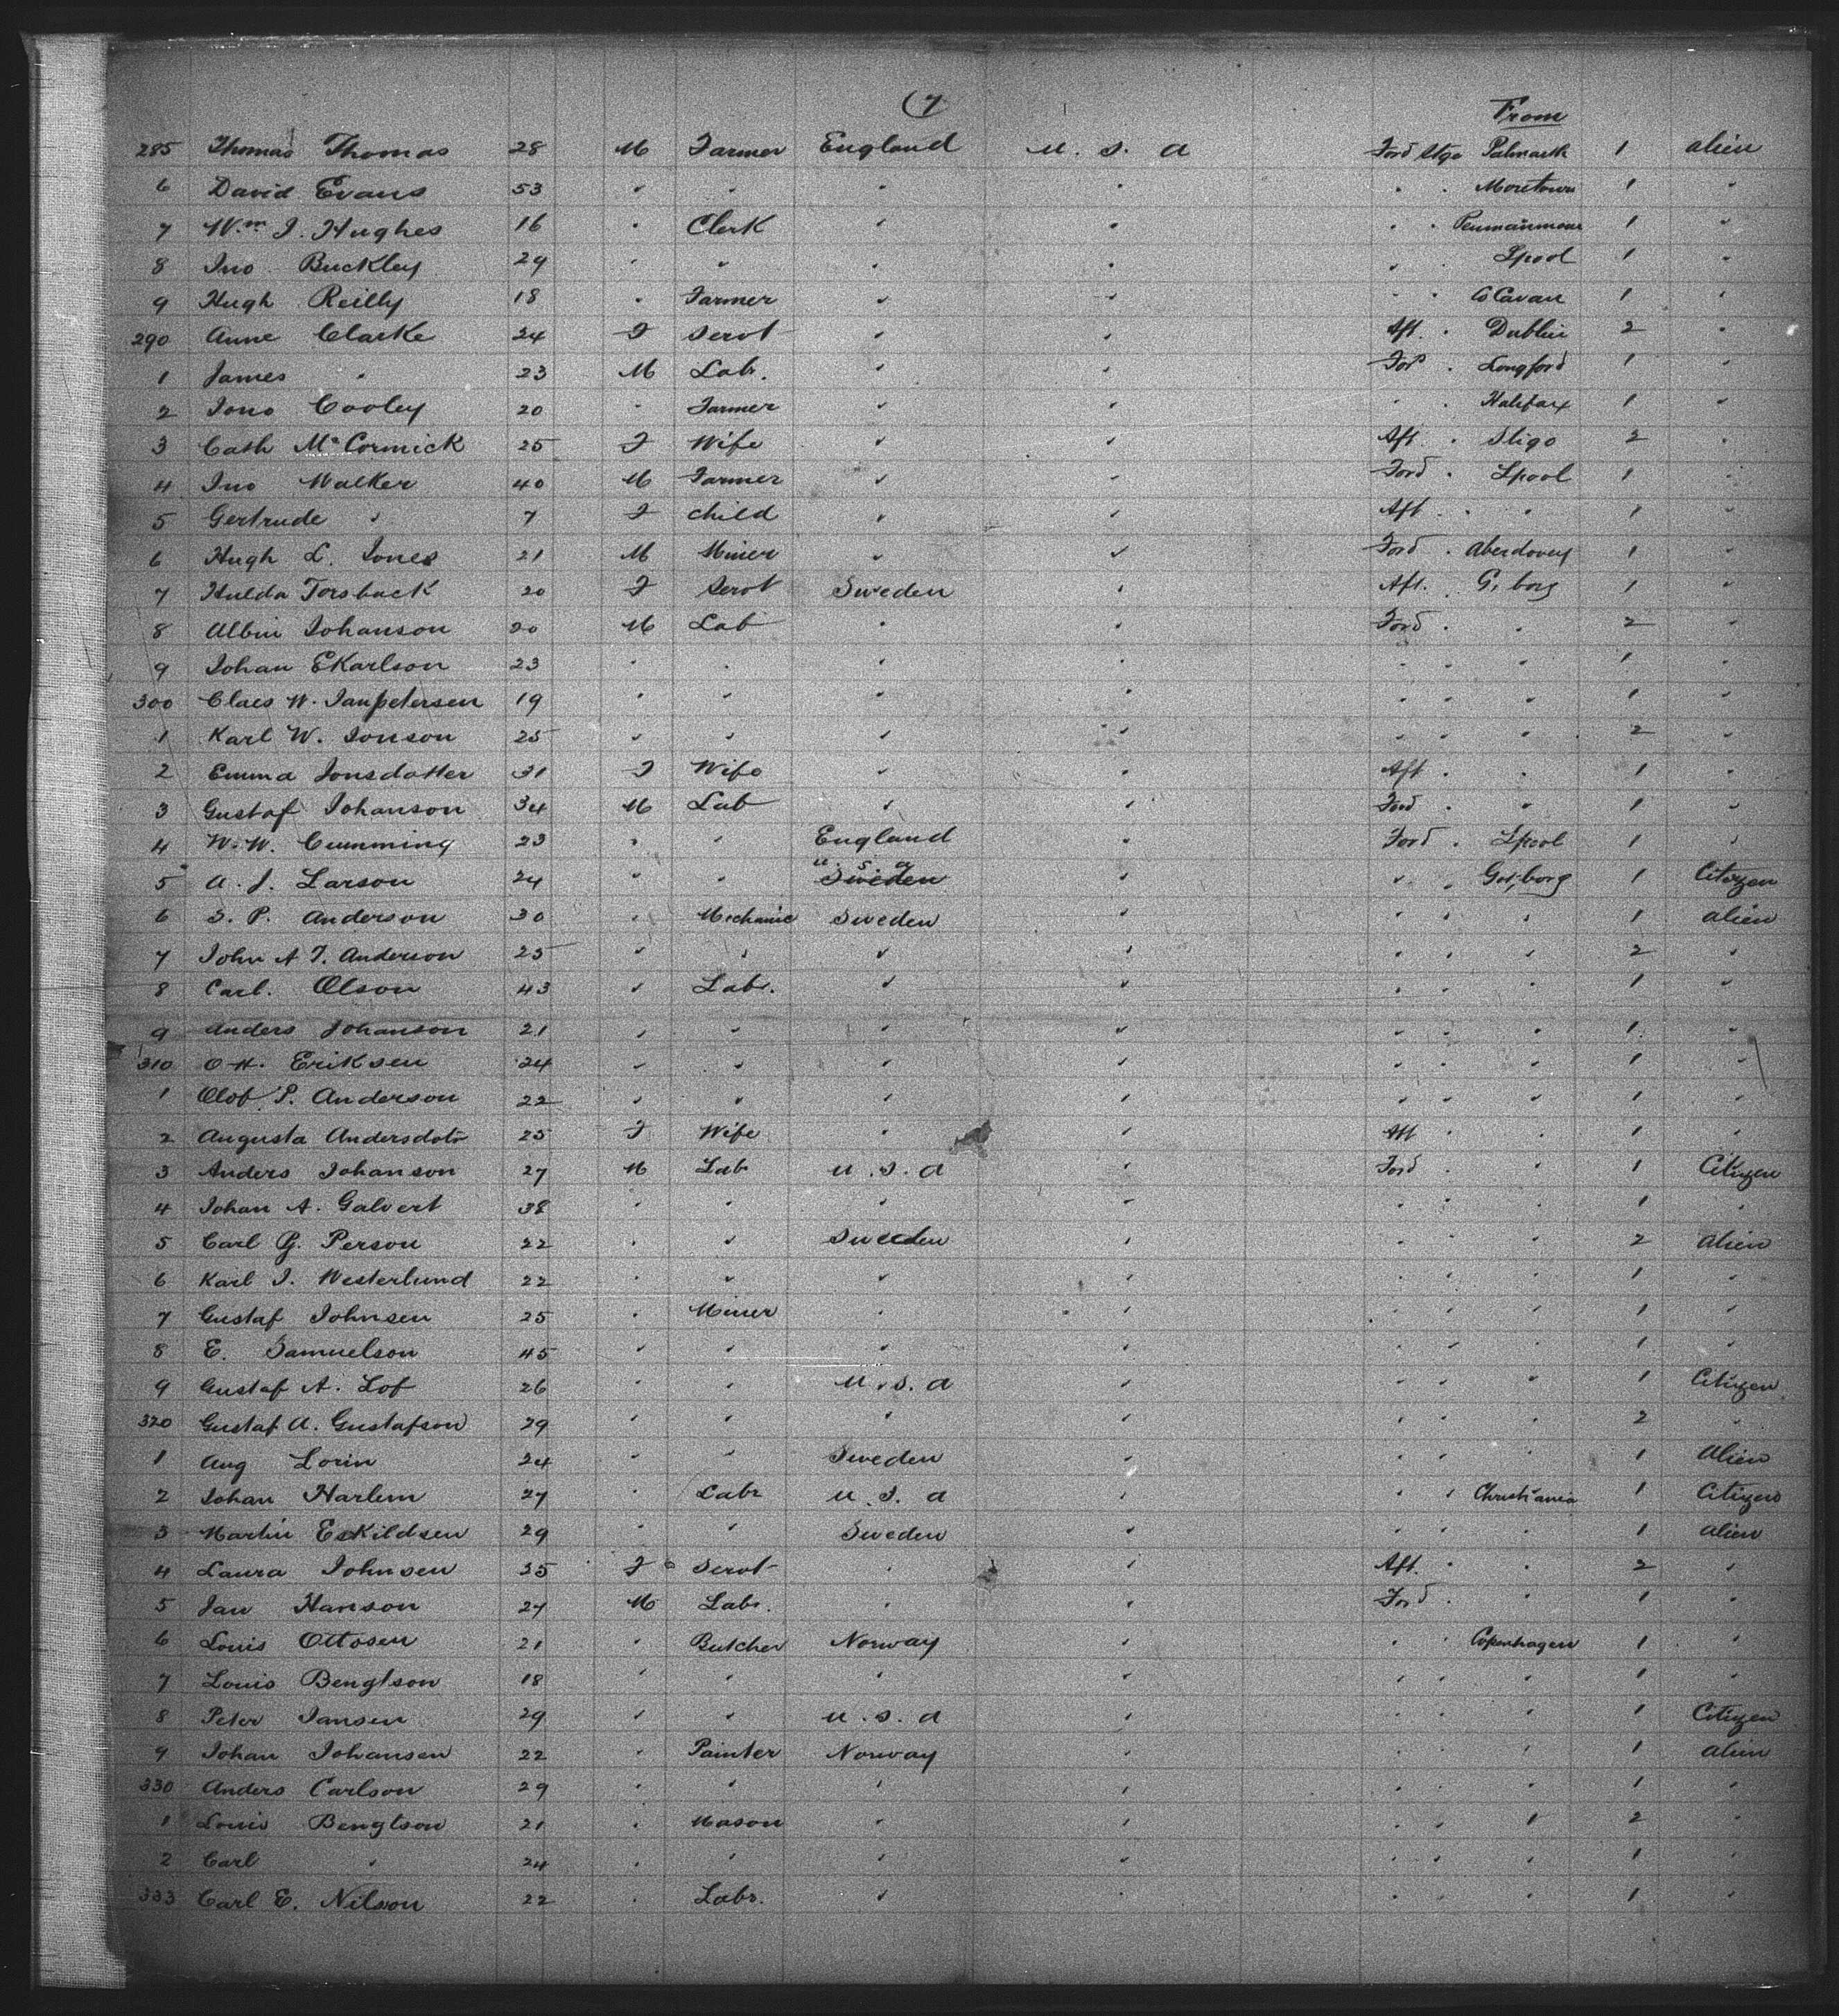 (7
From
285 Thomas Thomas 28 M Farmer England U. S. A Ford Stge 1 alien
6 David Evans 53 " " " " " " Moretown 1 "
7 Wm J. Hughes 16 " Clerk " " " " 1 "
8 Jno. Buckley 29 " " " " " " Lpool 1 "
9 Hugh Reilly 18 " Farmer " " " " Co Cavan 1 "
290 Anne Clarke 24 F Servt " " Aft. " Dublin 2 "
1 James " 23 M Labr. " " Ford " Longford 1 "
2 Jono Cooley 20 " Farmer " " " " Halifax 1 "
3 Cath McCormick 25 F Wife " " Aft " Sligo 2 "
4 Jno Walker 40 M Farmer " " Ford " Lpool 1 "
5 Gertrude " 7 F child " " Aft " " 1 "
6 Hugh L. Jones 21 M Miner " " Ford " Aberdovey 1 "
7 Hulda Torsback 20 F Servt Sweden " Aft. " G. borg 1 "
8 Albin Johanson 20 M Lab " " Ford " " 2 "
9 Johan E Karlson 23 " " " " " " " 1 "
300 Claes W. Janpetersen 19 " " " " " " " 1 "
1 Karl W. Jonson 25 " " " " " " " 2 "
2 Emma Jonsdotter 31 F Wife " " Aft " " 1 "
3 Gustaf Johanson 34 M Lab " " Ford " " 1 "
4 W. W. Cumming 23 " " England " Ford " Lpool 1 "
5 A. J. Larson 24 " " U. S. A Sweden " " " Got;borg 1 Citizen
6 S. P. Anderson 30 " Mechanic Sweden " " " " 1 alien
7 John A F. Anderson 25 " " " " " " " 2 "
8 Carl. Olson 43 " Labr. " " " " " 1 "
9 Anders Johanson 21 " " " " " " " 1 "
310 O H. Eriksen 24 " " " " " " " 1 "
1 Olof P. Anderson 22 " " " " " " " 1 "
2 Augusta Andersdotr 25 F Wife " " Aft " " 1 "
3 Anders Johanson 27 M Lab U. S. A " Ford " " 1 Citizen
4 Johan A. Galvert 38 " " " " " " " 1 "
5 Carl G. Person 22 " " Sweden " " " " 2 Alien
6 Karl J. Westerlund 22 " " " " " " " 1 "
7 Gustaf Johnsen 25 " Miner " " " " " 1 "
8 E. Samuelson 45 " " " " " " " 1 "
9 Gustaf A. Lof 26 " " U. S. A " " " " 1 Citizen
320 Gustaf A. Gustafson 29 " " " " " " " 2 "
1 Aug Lorin 24 " " Sweden " " " " 1 Alien
2 Johan Harlem 27 " Labr U. S. A " " " Christiania 1 Citizen
3 Martin Eskildsen 29 " " Sweden " " " " 1 alien
4 Laura Johnsen 35 F Servt " " Aft. " " 2 "
5 Jan Hanson 27 M Labr. " " Ford " " 1 "
6 Louis Ottosen 21 " Butcher Norway " " " Copenhagen 1 "
7 Louis Bengtson 18 " " " " " " " 1 "
8 Peter Jansen 29 " " U. S. A " " " " 1 Citizen
9 Johan Johansen 22 " Painter Norway " " " " 1 alien
330 Anders Carlson 29 " " " " " " " 1 "
1 Louis Bengtson 21 " Mason " " " " " 2 "
2 Carl " 24 " " " " " " " 1 "
333 Carl E. Nilson 22 " Labr. " " " " " 1 "